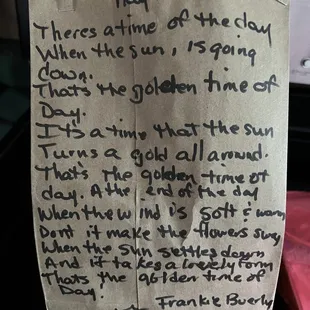 Theres a time of the day
When the sun, is going
down.
Thats the golden time of
Day.
Its a time that the sun
Turns a gold all around.
That's the golden time of
day. A the end of the day
When the wind is soft & warm
Dont it make the flowers sway
When the sun settles down
And it takes a lovely form
Thats the golden time of
Day.
Frankie Buerly